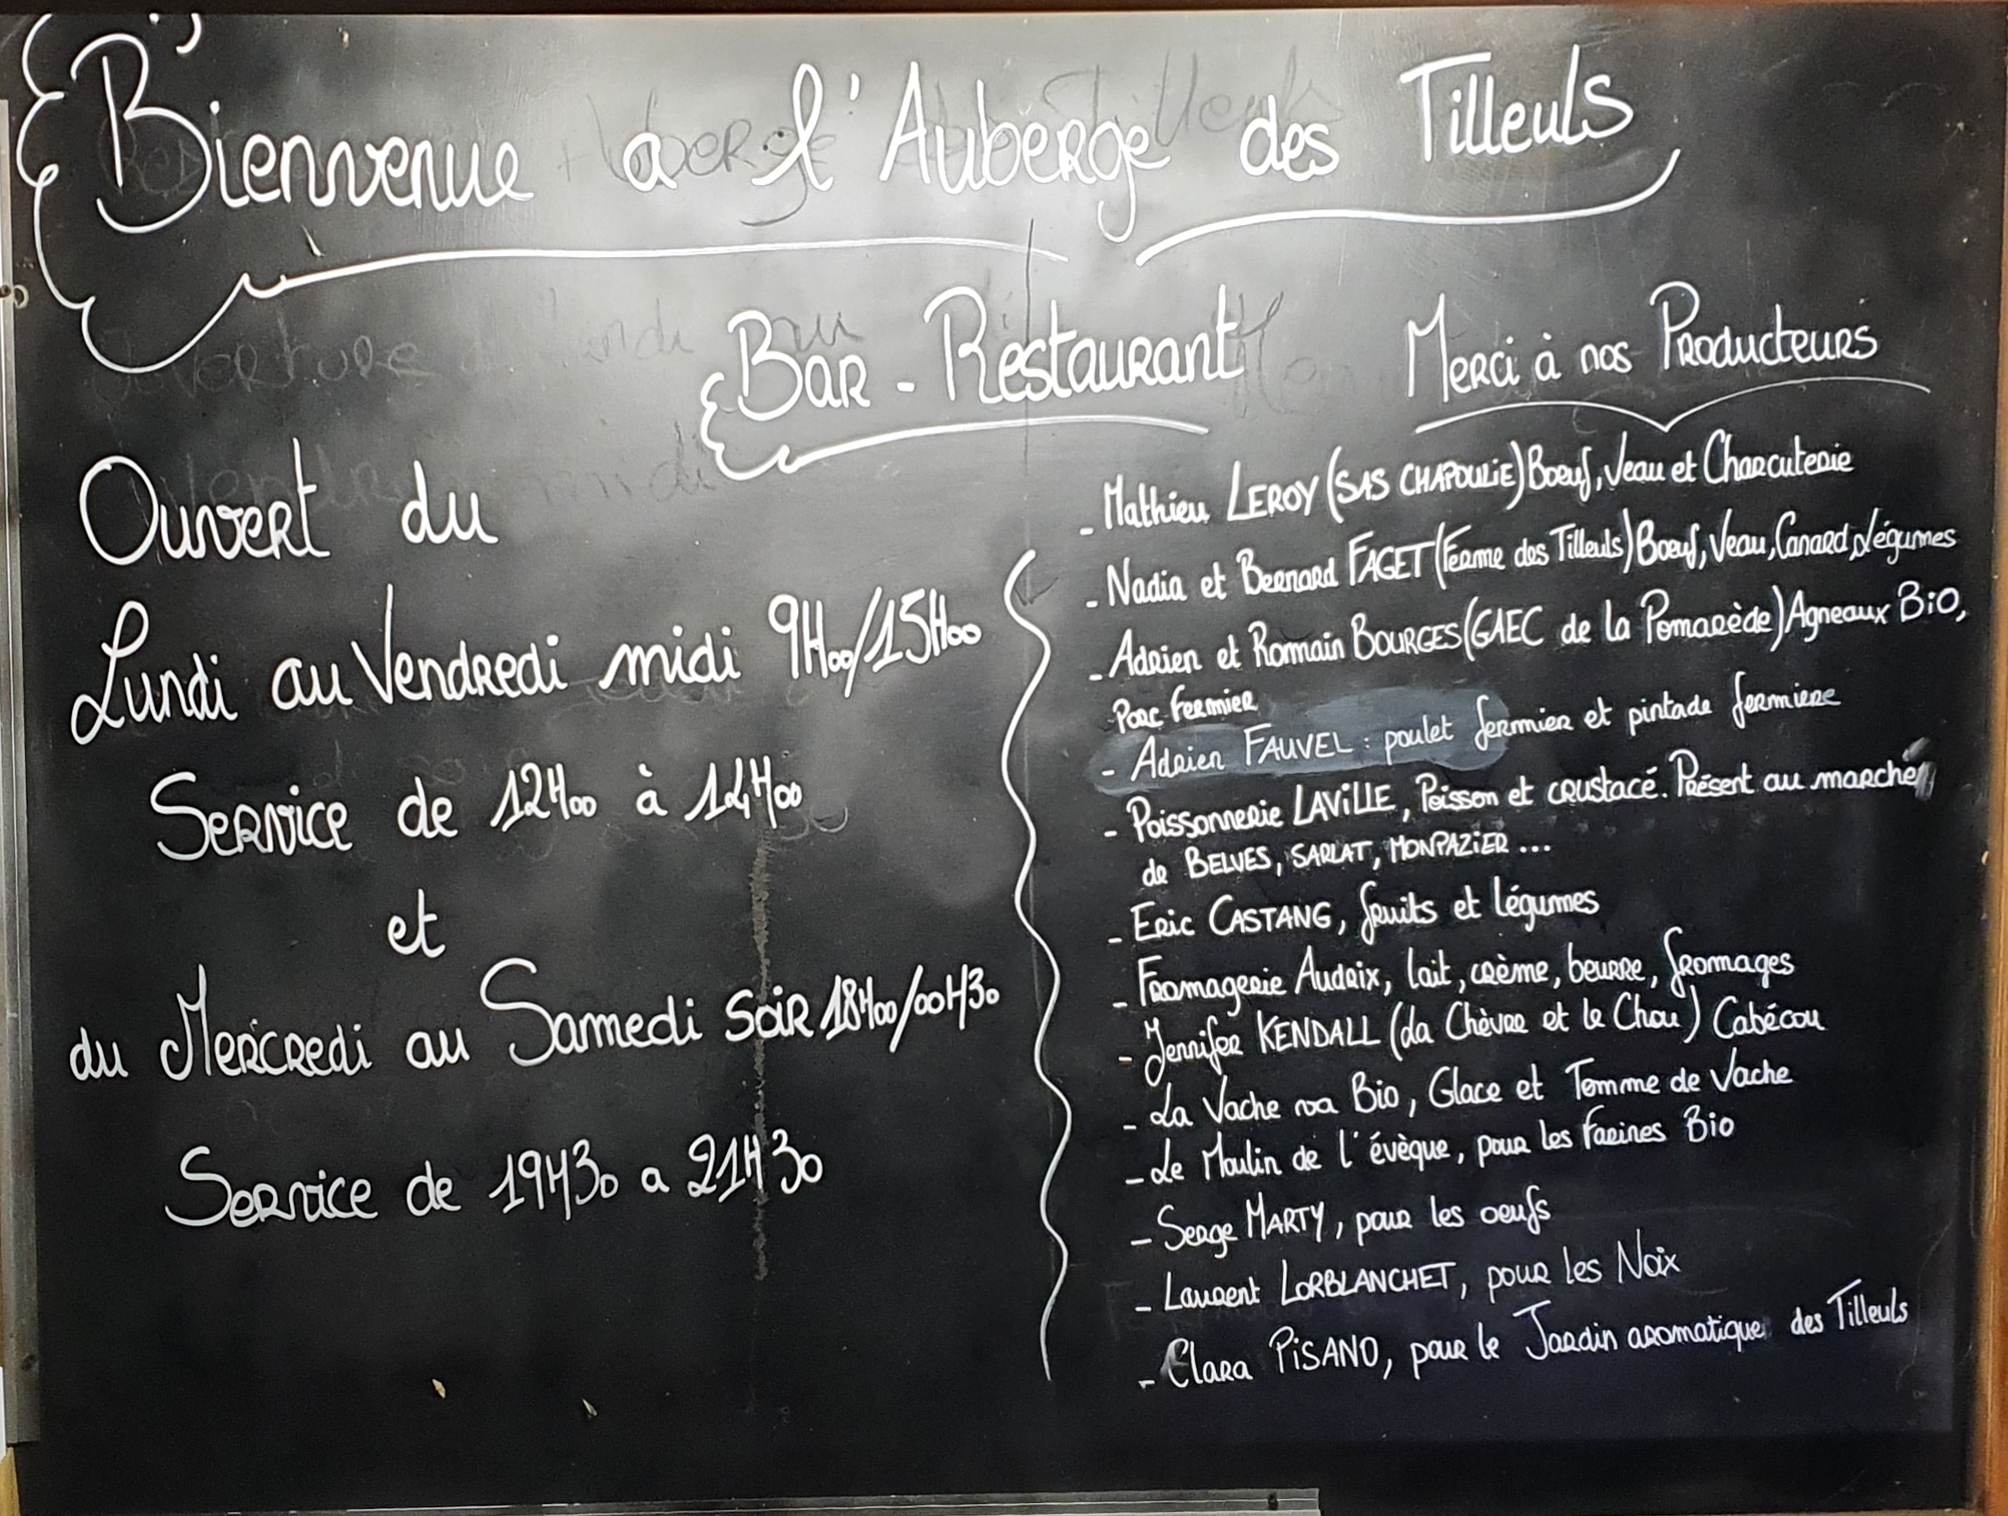 Bienvenue a l'Auberge des Tilleuls
Bar - Restaurant
Ouvert du
Lundi au Vendredi midi 9H00/15H00
Service de 12H00 à 14H00
et
du Mercredi au Samedi soir 18H00/00H30
Service de 19H30 a 21H30
Merci à nos Producteurs
- Mathieu LEROY (SAS CHAPOULIE) Boeuf, Veau et Charcuterie
- Nadia et Bernard FAGET (Ferme des Tilleuls) Boeuf, Veau, Canard, Légumes
- Adrien et Romain BOURGES (GAEC de la Pomarède) Agneaux BiO,
Porc Fermier
- Adrien FAUVEL : poulet fermier et pintade fermiere
- Poissonnerie LAViLLE, Poisson et crustacé. Présent au marché
de BELVES, SARLAT, MONPAZiER ...
- Eric CASTANG, fruits et légumes
- Fromagerie Audrix, lait, crème, beurre, fromages
- Jennifer KENDALL (La Chèvre et le Chou) Cabécou
- La Vache va Bio, Glace et Tomme de Vache
- Le Moulin de l'évèque, pour les Farines Bio
- Serge MARTY, pour les oeufs
- Laurent LORBLANCHET, pour les Noix
- Clara PiSANO, pour le Jardin aromatique des Tilleuls